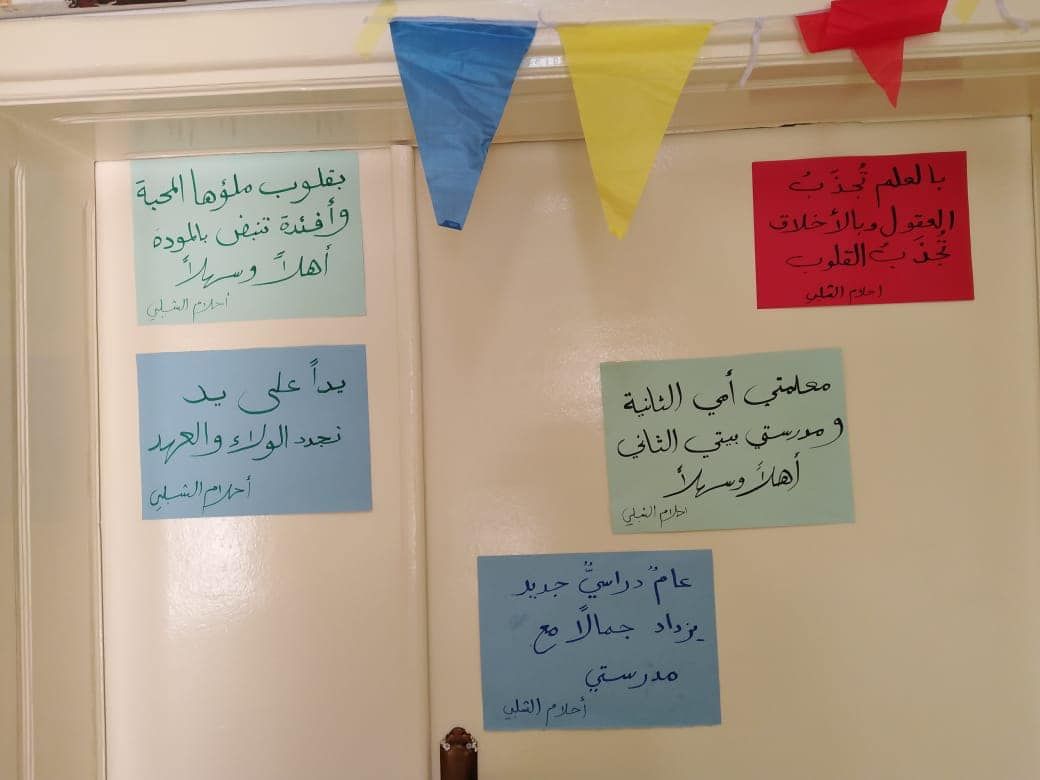 بقلوب ملؤها المحبة
وأفئدة تنبض بالمودة
أهلاً وسهلاً
أحلام الشبلي
يداً على يد
نجدد الولاء والعهد
أحلام الشبلي
بالعلم تُجذَبُ
العقول وبالأخلاق
تُجذَبُ القلوب
احلام الشبلي
معلمتي أمي الثانية
ومدرستي بيتي الثاني
أهلاً وسهلاً
احلام الشبلي
عامٌ دراسيٌّ جديد
يزداد جمالًا مع
مدرستي
أحلام الشبلي